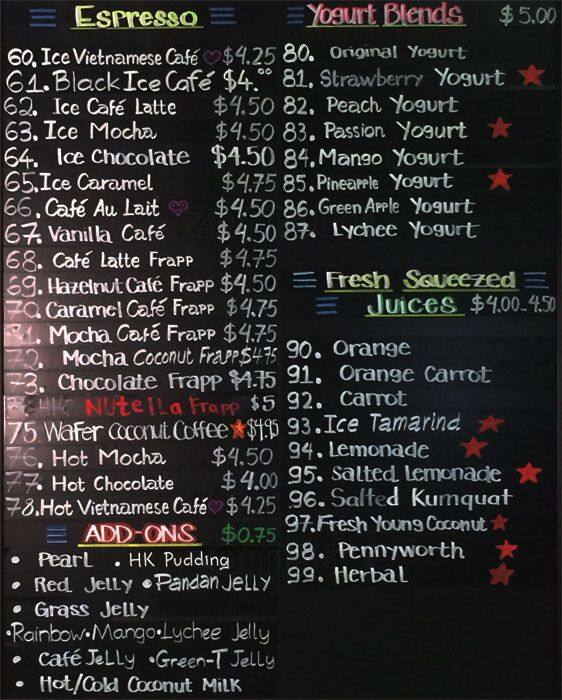 Espresso
60. Ice Vietnamese Café $4.25
61. Black Ice Café $4.00
62. Ice Café Latte $4.50
63. Ice Mocha $4.50
64. Ice Chocolate $4.50
65. Ice Caramel $4.75
66. Café Au Lait $4.50
67. Vanilla Café $4.50
68. Café Latte Frapp $4.75
69. Hazelnut Café Frapp $4.50
70. Caramel Café Frapp $4.75
71. Mocha Café Frapp $4.75
72. Mocha Coconut Frapp $4.75
73. Chocolate Frapp $4.75
Nutella Frapp $5
75 Wafer Coconut Coffee $4.95
76. Hot Mocha $4.50
77. Hot Chocolate $4.00
78. Hot Vietnamese Café $4.25
ADD-ONS $0.75
• Pearl • HK Pudding
• Red Jelly • Pandan Jelly
• Grass Jelly
•Rainbow•Mango•Lychee Jelly
• Café Jelly •Green-T Jelly
• Hot/Cold Coconut Milk
Yogurt Blends $5.00
80. Original Yogurt
81. Strawberry Yogurt
82. Peach Yogurt
83. Passion Yogurt
84. Mango Yogurt
85. Pineapple Yogurt
86. Green Apple Yogurt
87. Lychee Yogurt
Fresh Squeezed
Juices $4.00-4.50
90. Orange
91. Orange Carrot
92. Carrot
93. Ice Tamarind
94. Lemonade
95. Salted Lemonade
96. Salted Kumquat
97. Fresh Young Coconut
98. Pennyworth
99. Herbal